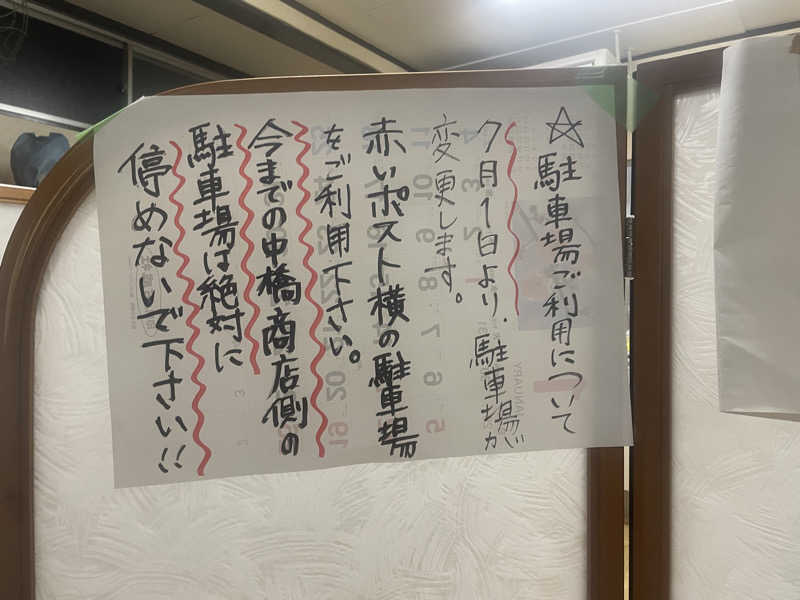 ☆駐車場ご利用について
7月1日より、駐車場が
変更します。
赤いポスト横の駐車場
をご利用下さい。
今までの中橋商店側の
駐車場は絶対に
停めないで下さい!!